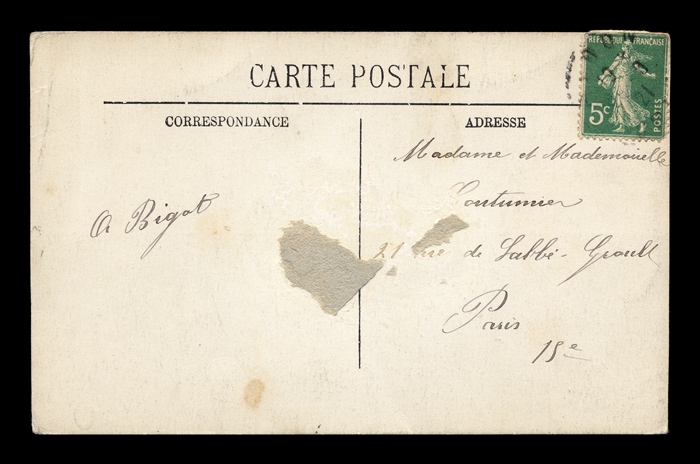 CARTE POSTALE
REPUBLIQUE FRANÇAISE
5c
POSTES
CORRESPONDANCE
ADRESSE
Madame et Mademoiselle
Coutumier
A Bigot
21 rue de l'abbé-Groult
Paris
15e